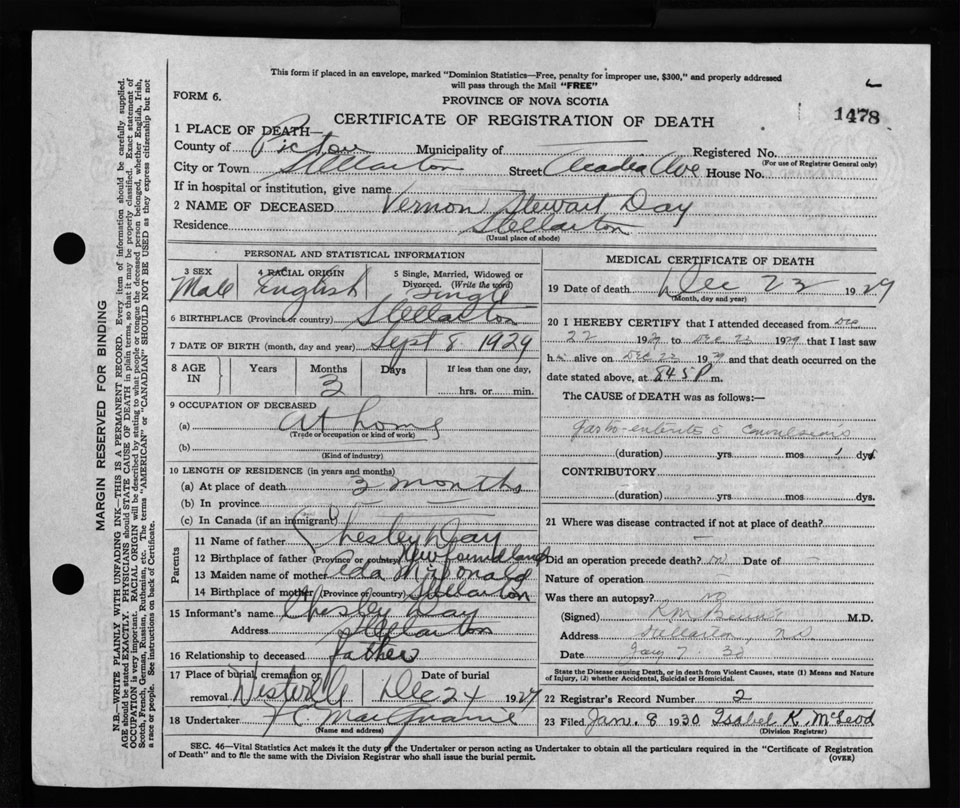 This form if placed in an envelope, marked "Dominion Statistics—Free, penalty for improper use, $300," and properly addressed
will pass through the Mail "FREE"
FORM 6.
PROVINCE OF NOVA SCOTIA
1478
CERTIFICATE OF REGISTRATION OF DEATH
1 PLACE OF DEATH—
County of Pictou Municipality of Registered No.
(For use of Registrar General only)
City or Town Stellarton Street Acadia Ave House No.
If in hospital or institution, give name
2 NAME OF DECEASED Vernon Stewart Day
Residence Stellarton
(Usual place of abode)
PERSONAL AND STATISTICAL INFORMATION
3 SEX Male
4 RACIAL ORIGIN English
5 Single, Married, Widowed or Divorced. (Write the word) Single
6 BIRTHPLACE (Province or country) Stellarton
7 DATE OF BIRTH (month, day and year) Sept 8 1929
8 AGE IN Years Months 3 Days If less than one day, hrs. or min.
9 OCCUPATION OF DECEASED
(a) At home
(Trade or occupation or kind of work)
(b)
(Kind of industry)
10 LENGTH OF RESIDENCE (in years and months)
(a) At place of death 3 months
(b) In province
(c) In Canada (if an immigrant)
Parents
11 Name of father Chesley Day
12 Birthplace of father (Province or country) Newfoundland
13 Maiden name of mother Ada McDonald
14 Birthplace of mother (Province or country) Stellarton
15 Informant's name Chesley Day
Address Stellarton
16 Relationship to deceased father
17 Place of burial, cremation or removal Westville Date of burial Dec 24 1929
18 Undertaker
(Name and address)
MEDICAL CERTIFICATE OF DEATH
19 Date of death Dec 22 1929
(Month, day and year)
20 I HEREBY CERTIFY that I attended deceased from Dec
22 1929 to Dec 22 1929 that I last saw
h alive on Dec 22 1929 and that death occurred on the
date stated above, at 845 P m.
The CAUSE of DEATH was as follows:—
Gastro-enteritis c convulsions
(duration) yrs mos 1 dys
CONTRIBUTORY
(duration) yrs mos. dys.
21 Where was disease contracted if not at place of death?
Did an operation precede death? no Date of
Nature of operation
Was there an autopsy? no
(Signed) M.D.
Address Stellarton, NS
Date Jany 7 30
State the Disease causing Death, or in death from Violent Causes, state (1) Means and Nature
of Injury, (2) whether Accidental, Suicidal or Homicidal.
22 Registrar's Record Number 2
23 Filed Jan. 8 1930 Isabel K. McLeod
(Division Registrar)
SEC. 46—Vital Statistics Act makes it the duty of the Undertaker or person acting as Undertaker to obtain all the particulars required in the "Certificate of Registration
of Death" and to file the same with the Division Registrar who shall issue the burial permit.
(OVER)
MARGIN RESERVED FOR BINDING
N.B.—WRITE PLAINLY WITH UNFADING INK—THIS IS A PERMANENT RECORD. Every item of information should be carefully supplied.
AGE should be stated EXACTLY. PHYSICIANS should STATE CAUSE OF DEATH in plain terms, so that it may be properly classified. Exact statement of
OCCUPATION is very important. RACIAL ORIGIN will be described by stating to what people or tongue the deceased person belonged, whether English, Irish,
Scotch, French, German, Russian, Ruthenian, etc. The terms "AMERICAN" or "CANADIAN" SHOULD NOT BE USED as they express citizenship but not
a race or people. See instructions on back of Certificate.